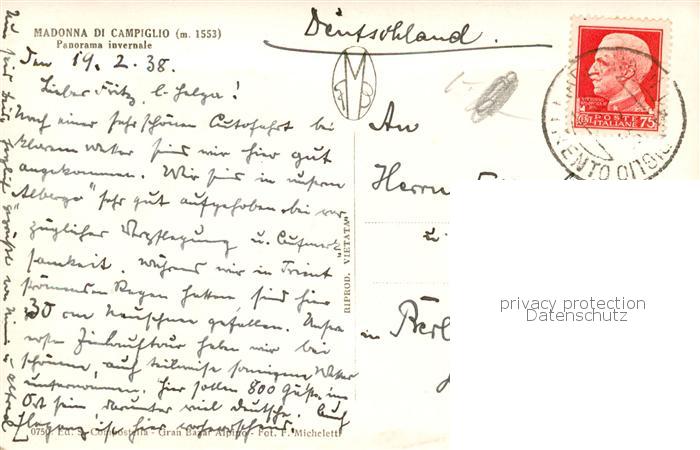 MADONNA DI CAMPIGLIO (m. 1553)
Panorama invernale
Deutschland.
Den 19.2.38.
Lieber Fritz, l. Helga!
Nach einer sehr schönen Autofahrt bei
klarem Wetter sind wir hier gut
angekommen. Wir sind in unserem
"Albergo" sehr gut aufgehoben bei vor
züglicher Verpflegung u. Aufmerk
samkeit. Während wir in Trient
strömenden Regen hatten, sind hier
30 cm Neuschnee gefallen. Unsere
erste Skitour haben wir bei
schönem, auch teilweise sonnigem Wetter
unternommen. Hier sollen 800 Gäste im
Ort sein, darunter viel Deutsche. Auch
ist hier
An
Herrn
u.
in Berl
POSTE
ITALIANE
CENT 75
TRENTO
RIPROD. VIETATA
0750 Ed. S. Compostella - Gran Bazar Alpino - Fot. F. Micheletti
privacy protection
Datenschutz